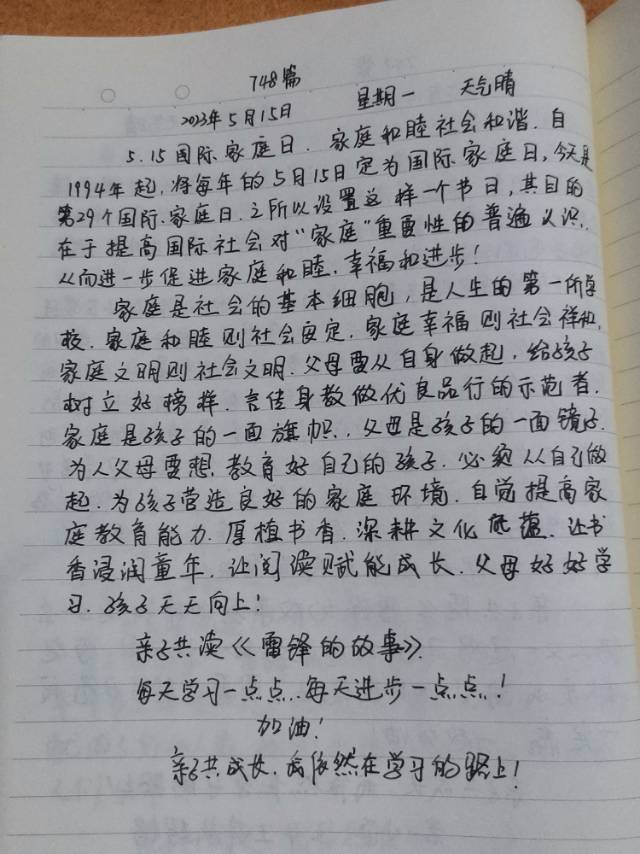 748篇
2023年5月15日 星期一 天气晴
5.15国际家庭日.家庭和睦社会和谐.自
1994年起,将每年的5月15日定为国际家庭日,今天是
第29个国际家庭日.之所以设置这样一个节日,其目的
在于提高国际社会对"家庭"重要性的普遍认识,
从而进一步促进家庭和睦.幸福和进步!
家庭是社会的基本细胞,是人生的第一所学
校.家庭和睦则社会安定.家庭幸福则社会祥和,
家庭文明则社会文明.父母要从自身做起,给孩子
树立好榜样.言传身教做优良品行的示范者.
家庭是孩子的一面旗帜.父母是孩子的一面镜子.
为人父母要想教育好自己的孩子.必须从自己做
起.为孩子营造良好的家庭环境.自觉提高家
庭教育能力.厚植书香.深耕文化底蕴.让书
香浸润童年.让阅读赋能成长.父母好好学
习.孩子天天向上!
亲子共读《雷锋的故事》.
每天学习一点点.每天进步一点点!
加油!
亲子共成长.我依然在学习的路上!